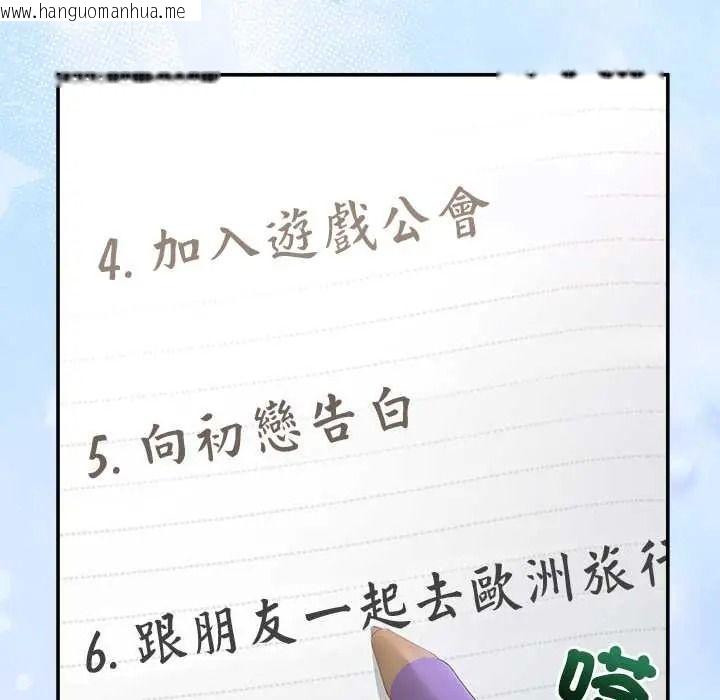 www.hanguomanhua.me
4. 加入遊戲公會
5. 向初戀告白
6. 跟朋友一起去歐洲旅行
嗒